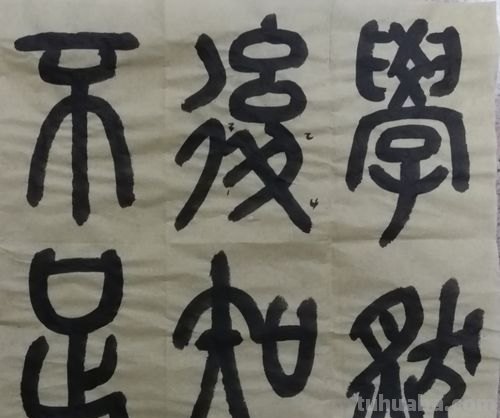 學然
後知
不足
tuhuaba.com